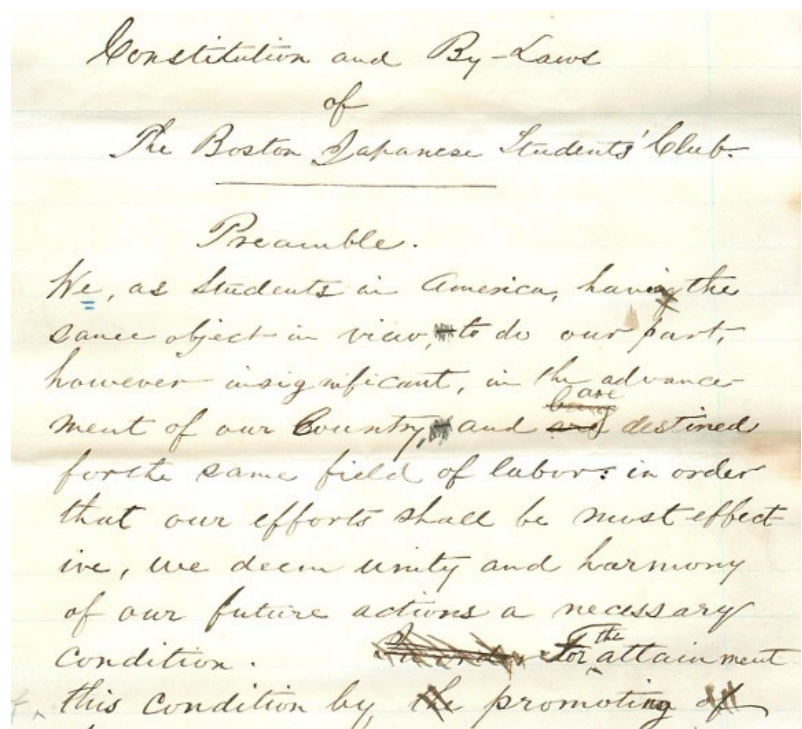 Constitution and By-Laws
of
The Boston Japanese Students' Club.
Preamble.
We, as Students in America, having the
same object in view, to do our part,
however insignificant, in the advance-
ment of our Country, and are destined
for the same field of labor: in order
that our efforts shall be most effect-
ive, we deem unity and harmony
of our future actions a necessary
condition. For the attainment
this condition by the promoting of